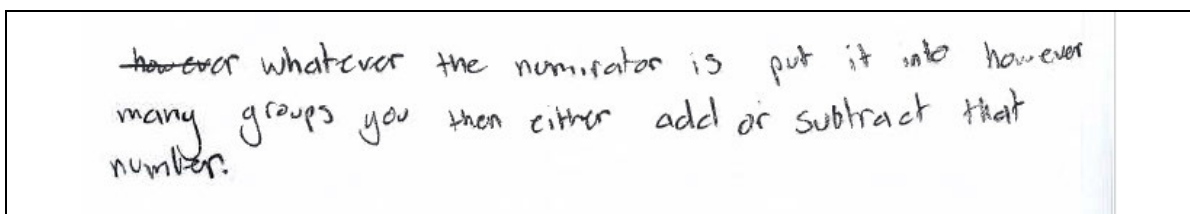 however whatever the numirator is put it into however
many groups you then either add or subtract that
number.